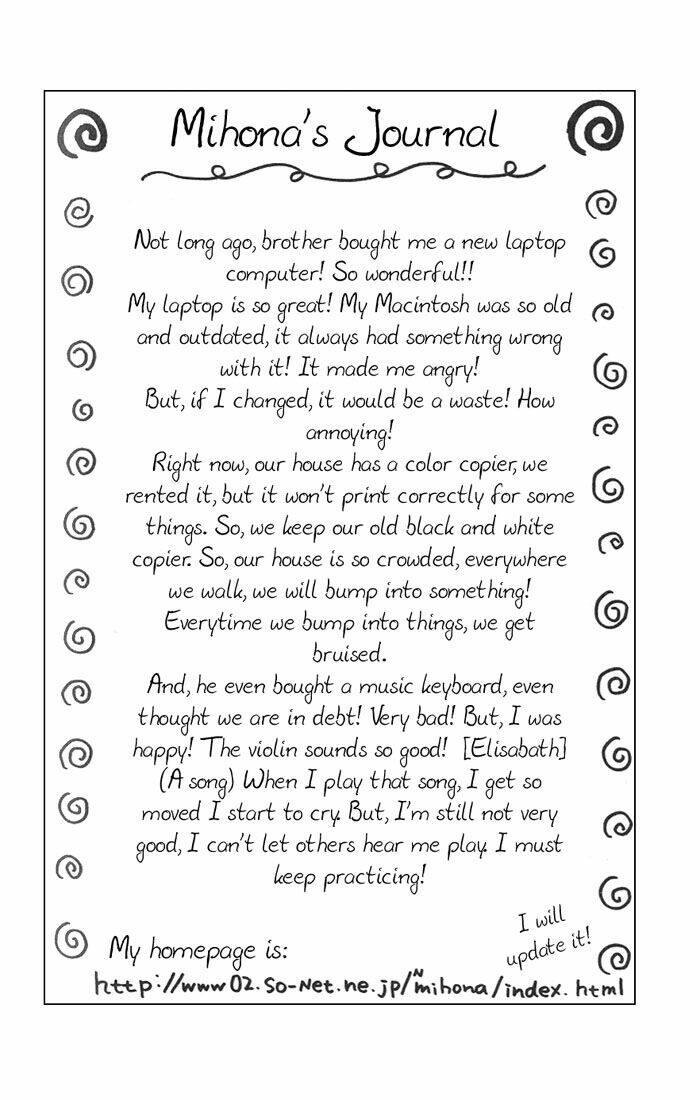 Mihona's Journal
Not long ago, brother bought me a new laptop
computer! So wonderful!!
My laptop is so great! My Macintosh was so old
and outdated, it always had something wrong
with it! It made me angry!
But, if I changed, it would be a waste! How
annoying!
Right now, our house has a color copier, we
rented it, but it won't print correctly for some
things. So, we keep our old black and white
copier. So, our house is so crowded, everywhere
we walk, we will bump into something!
Everytime we bump into things, we get
bruised.
And, he even bought a music keyboard, even
thought we are in debt! Very bad! But, I was
happy! The violin sounds so good! [Elisabath]
(A song) When I play that song, I get so
moved I start to cry. But, I'm still not very
good, I can't let others hear me play. I must
keep practicing!
I will
update it!
My homepage is:
http://www02.so-net.ne.jp/~mihona/index.html